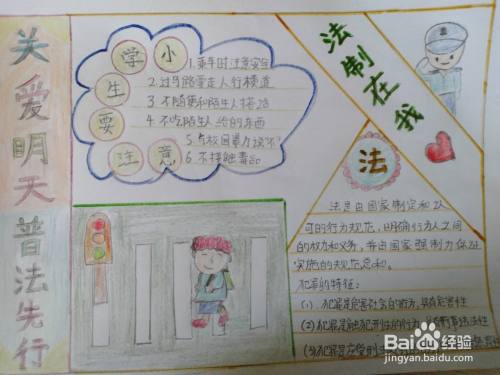 关爱明天普法先行
小学生要注意
1.乘车时注意安全
2.过马路要走人行横道
3.不随便和陌生人搭话
4.不吃陌生人给的东西
5.与校园暴力说"不"
6.不接触毒品
法制在我
法
法是由国家制定和认
可的行为规范,明确行为人之间
的权力和义务,并由国家强制力保证
实施的规范总和。
犯罪的特征:
(1).犯罪是危害社会的行为,具有危害性
(2)犯罪是触犯刑法的行为
(3)犯罪是应受刑
Baidu经验
jingyan.baidu.com